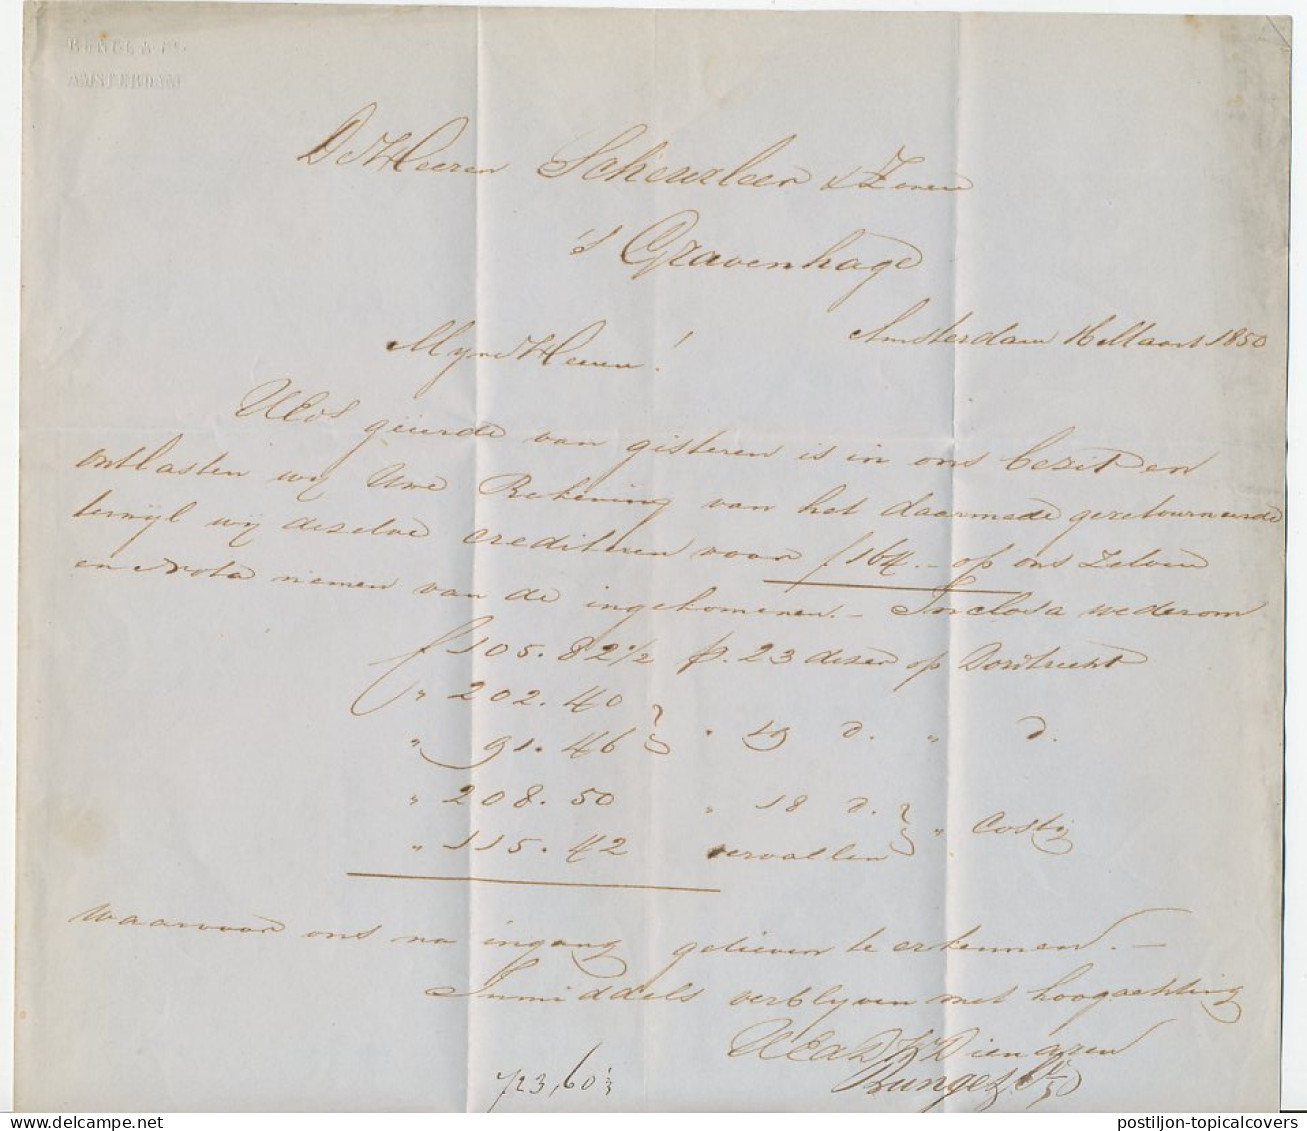 AMSTERDAM
De Heeren Scheurleer & Zonen
's Gravenhage
Amsterdam 16 Maart 1850
Myne Heeren!
UEds geëerde van gisteren is in ons bezit en
ontlasten wij Uwe Rekening van het daarmede geretourneerde
terwijl wij dezelve crediteren voor f 164.- op ons Zelven
en Nota nemen van de ingekomenen. - Inclosa wederom
f 105.82 1/2 p. 23 dezer op Dordrecht
" 202.40
" 91.46 } " 19 d. " d.
" 208.50 " 18 d.
" 115.42 vervallen } " Costij
waarvoor ons na ingang gelieven te erkennen. -
Inmiddels verblyven met hoogachting
UEd DW Dienaren
Runge & Co
723,60 1/2
postiljon-topicalcovers